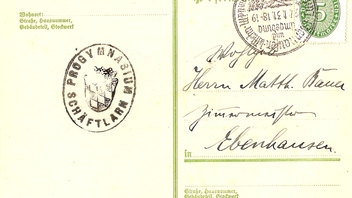 Wohnort:
Straße, Hausnummer,
Gebäudeteil, Stockwerk
PROGYMNASIUM
SCHÄFTLARN
Herrn Matth. Bauer
Zimmermeister
in Ebenhausen.
Straße, Hausnummer,
Gebäudeteil, Stockwerk